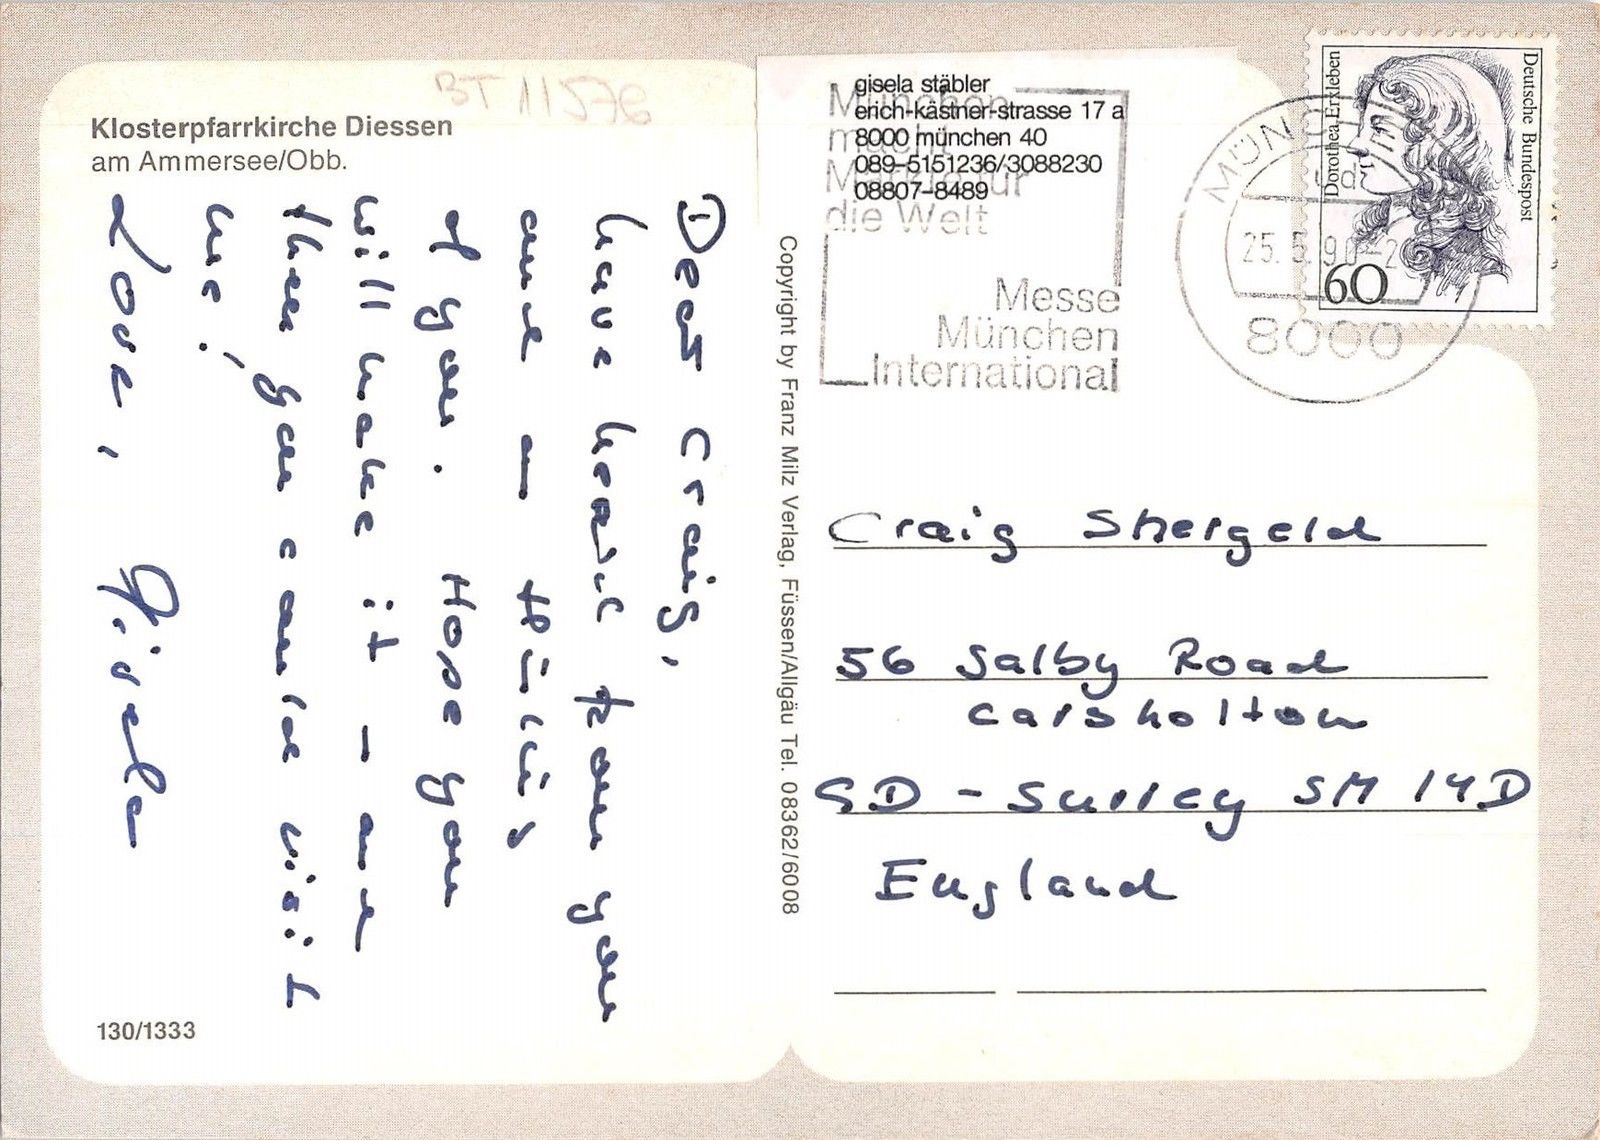 BT 11576
Klosterpfarrkirche Diessen
am Ammersee/Obb.
Dear Craig,
have heard from you
and - thinking
of you. Hope you
will make it - and
then you could visit
me!
Love, Gisela
130/1333
Copyright by Franz Milz Verlag, Füssen/Allgäu Tel. 08362/6008
gisela stäbler
erich-kästner-strasse 17 a
8000 münchen 40
089-5151236/3088230
08807-8489
München
macht
Märkte für
die Welt
Messe
München
International
MÜNCHEN
25.5.90
8000
Deutsche Bundespost
Dorothea Erxleben
60
Craig Shergeld
56 Salby Road
Carsholton
GD - Surrey SM 14D
England